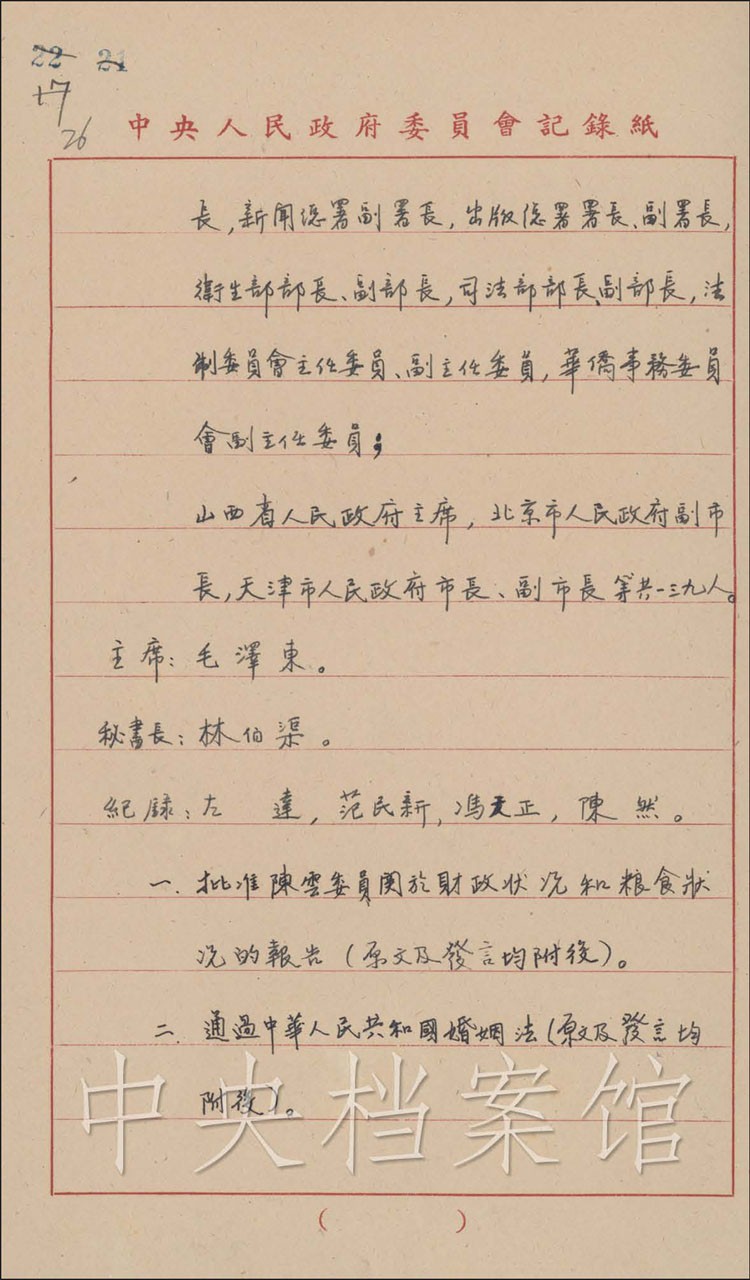 22 21
17
26
中央人民政府委員會記錄紙
長,新聞總署副署長,出版總署署長、副署長,
衛生部部長、副部長,司法部部長、副部長,法
制委員會主任委員、副主任委員,華僑事務委員
會副主任委員;
山西省人民政府主席,北京市人民政府副市
長,天津市人民政府市長、副市長等共一三九人。
主席:毛澤東。
秘書長:林伯渠。
紀錄:左 達,范民新,馮天正,陳 然。
一.批准陳雲委員関於財政状况和粮食狀
况的報告(原文及發言均附後)。
二.通過中華人民共和國婚姻法(原文及發言均
附後)。
中央档案馆
( )